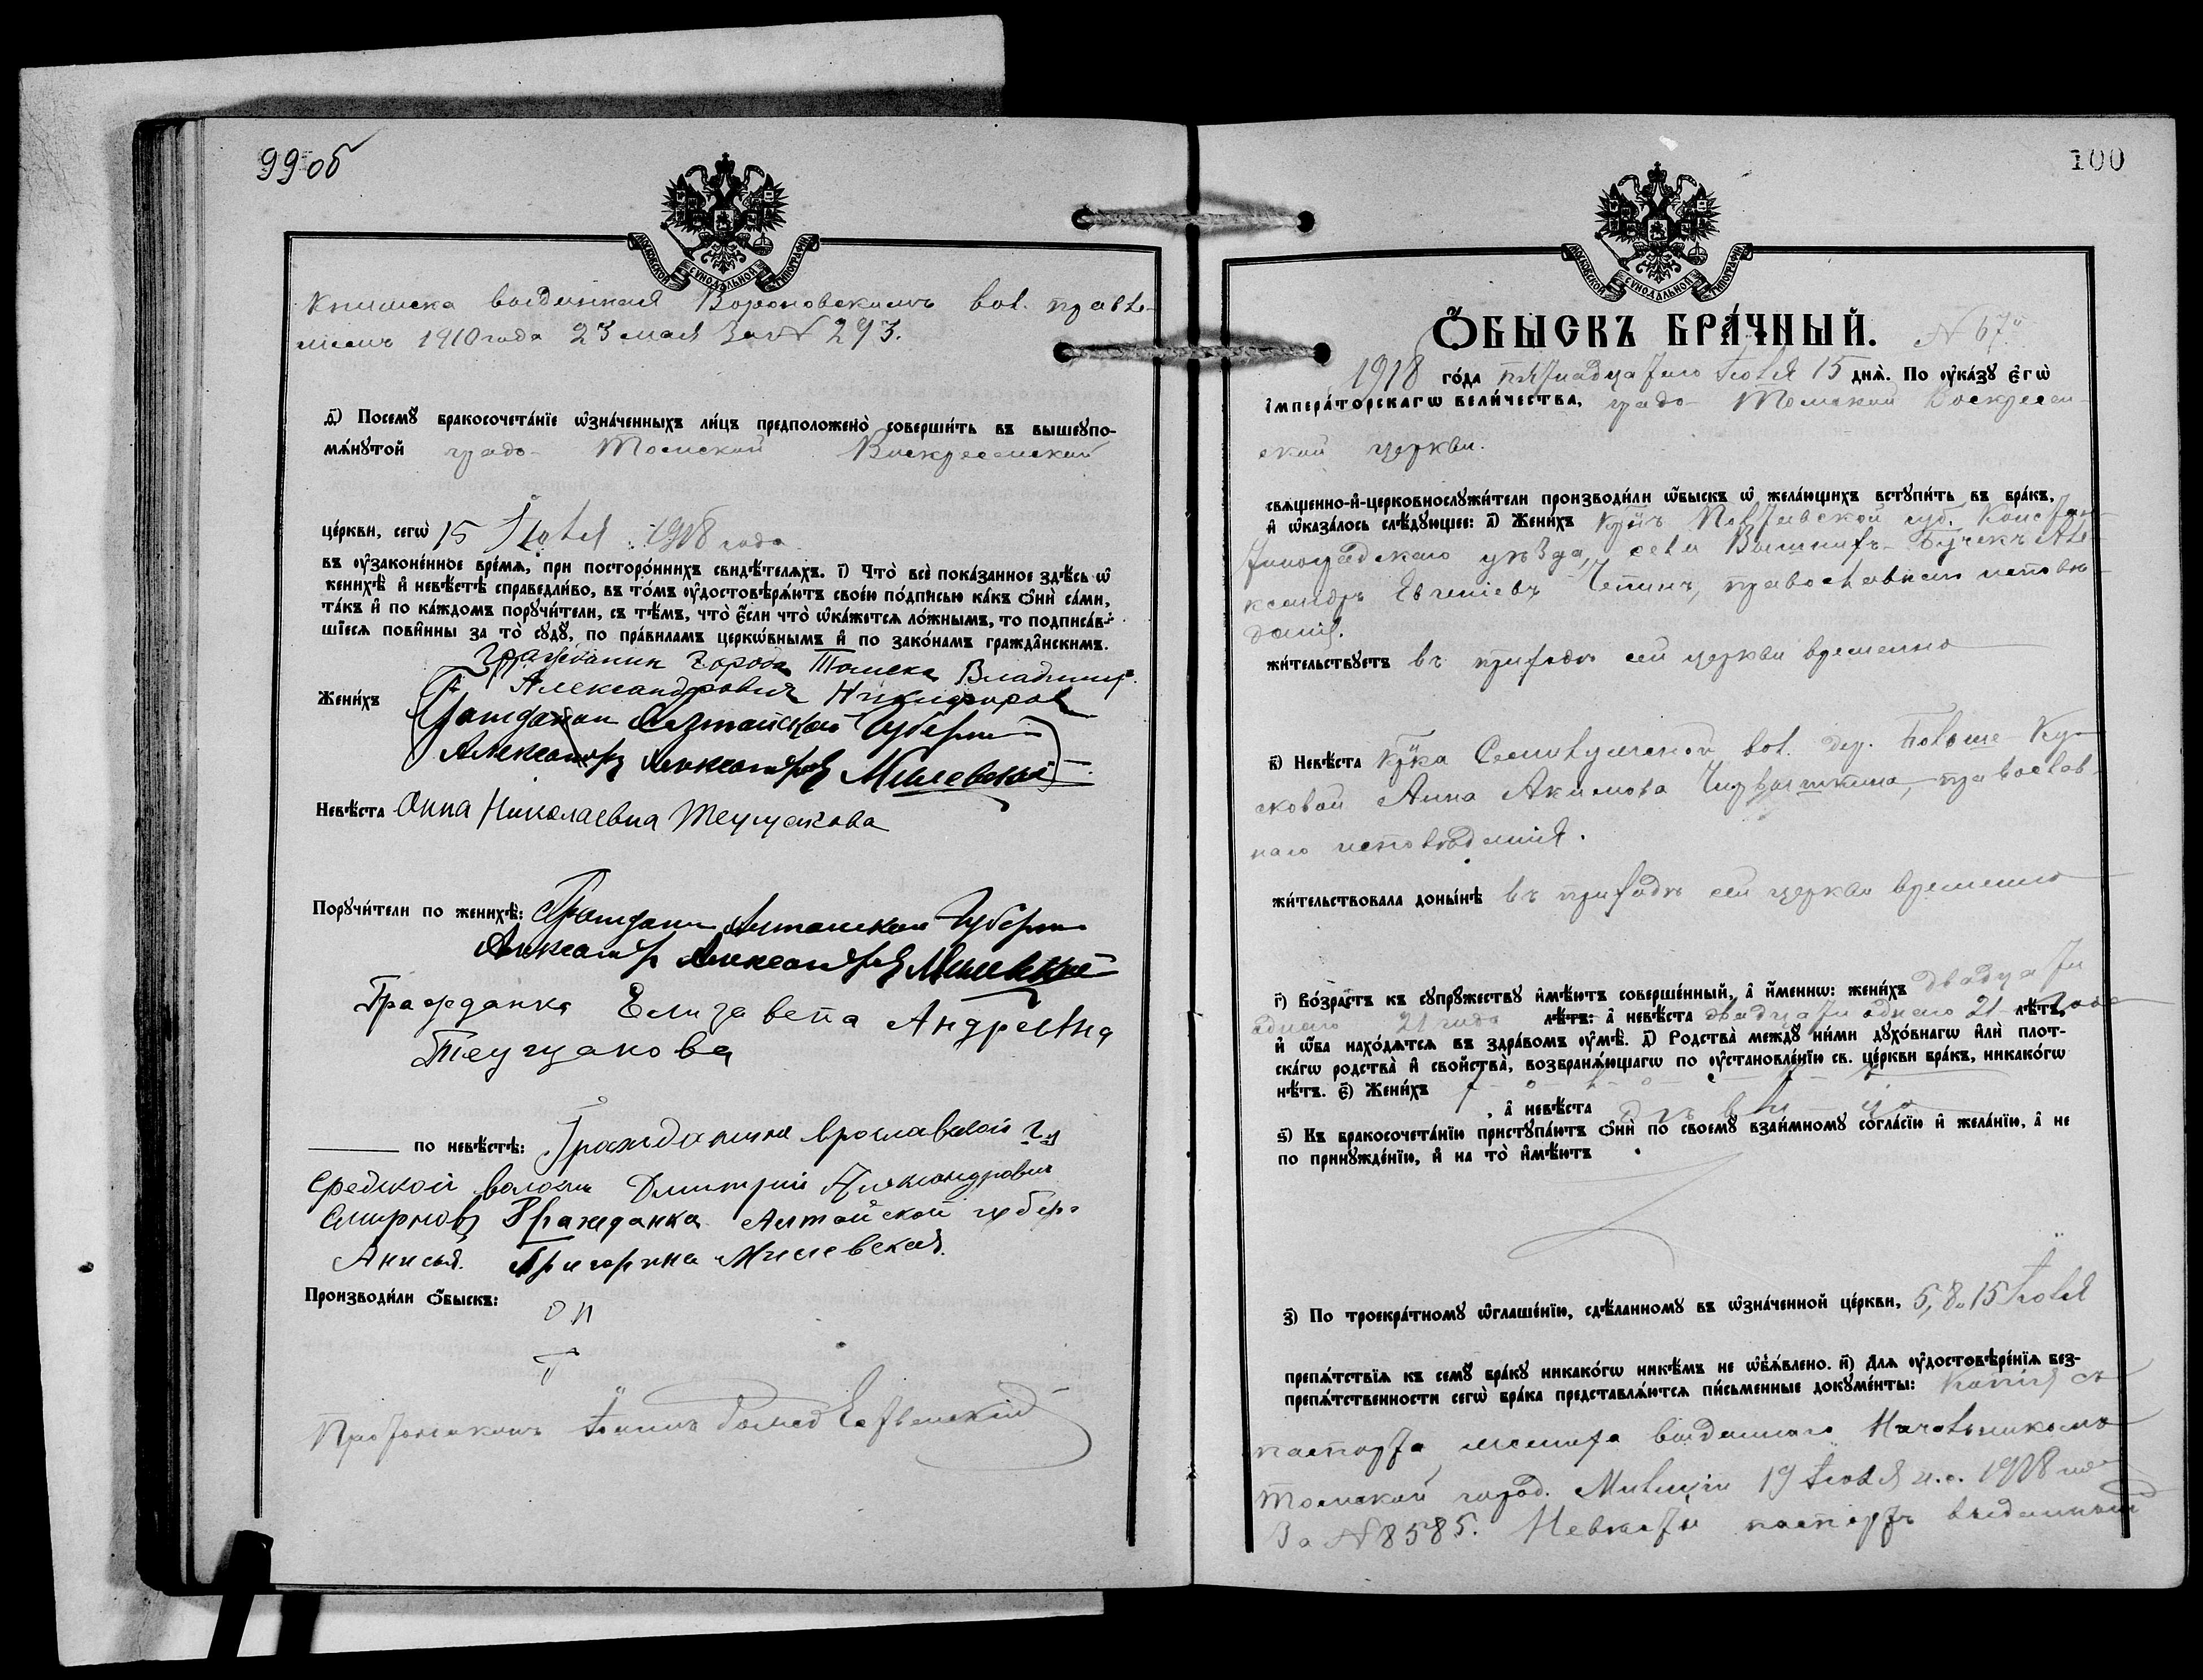 99 об
МОСКОВСКОЙ СѴНОДАЛЬНОЙ ТИПОГРАФІИ
книжка выданная Вороновскимъ вол. правле-
ніемъ 1910 года 23 мая за № 293.
д҃) Посемꙋ̀ бракосочета́нїе ѡ҆зна́ченныхъ ли́цъ предположено̀ соверши́ть въ вышеꙋпо-
мѧ́нꙋтой градо- Томской Воскресенской
це́ркви, сегѡ̀ 15 Іюля 1918 года
въ ᲂу҆зако́ненное вре́мѧ, при посторо́ннихъ свидѣ́телѧхъ. і҃) Что̀ всѐ пока́занное здѣ́сь ѡ҆
женихѣ̀ и҆ невѣ́стѣ справедли́во, въ то́мъ ᲂу҆достовѣрѧ́ютъ свое́ю по́дписью ка́къ ѻ҆нѝ са́ми,
та́къ и҆ по ка́ждомъ порꙋчи́тели, съ тѣ́мъ, что̀ є҆́сли что̀ ѡ҆ка́жетсѧ ло́жнымъ, то подписа́в-
шїесѧ пови́нны за то̀ сꙋдꙋ̀, по пра́виламъ церкѡ́внымъ и҆ по зако́намъ гражда́нскимъ.
Гражданин города Томска Владимир
Жени́хъ Александрович Никифоров
Гражданин Алтайской Губерни
Александр Александров Мишевской
Невѣ́ста Анна Николаевна Теущакова
Порꙋчи́тели по женихѣ̀: Граждани Алтайской Губерни
Александр Александров Мишевской
Гражданка Елизавета Андревна
Теущакова
по невѣ́стѣ: Гражданина Ярославской гу
Средской волости Дмитрий Александрович
Смирновъ Гражданка Алтайской губер
Анисья Григорина Мишевская.
Производи́ли ѻ҆́быскъ:
Протоіакимъ Іоаннъ
100
МОСКОВСКОЙ СѴНОДАЛЬНОЙ ТИПОГРАФІИ
Ѻ҆́БЫСКЪ БРА́ЧНЫЙ. № 67й
1918 го́да пятнадцатаго Іюля 15 днѧ̀. По ᲂу҆ка́зꙋ є҆гѡ̀
і҆мпера́торскагѡ вели́чества, градо- Томской Воскресен-
ской церкви.
свѧще́нно-и҆-церковнослꙋжи́тели производи́ли ѻ҆́быскъ ѡ҆ жела́ющихъ встꙋпи́ть въ бра́къ,
и҆ ѡ҆каза́лось слѣ́дꙋющее: а҃) Жени́хъ кр̃нъ Полтавской губ. Констан-
тиноградскаго уѣзда, села Але-
ксандръ Евгеніевъ Чепинъ, православнаго исповѣ-
данія.
жи́тельствꙋетъ въ приходѣ сей церкви временно
в҃) Невѣ́ста кр̃ка Семилужской вол. дер. Больше-Ку-
сковой Анна Акимова православ-
наго исповѣданія.
жи́тельствовала доны́нѣ въ приходѣ сей церкви временно
г҃) Во́зрастъ къ сꙋпрꙋ́жествꙋ и҆мѣ́ютъ соверше́нный, а҆ и҆́меннѡ: жени́хъ двадцати
одного 21 года лѣ́тъ: а҆ невѣ́ста двадцати одного 21 года лѣ́тъ,
и҆ ѻ҆́ба нахо́дѧтсѧ въ здра́вомъ ᲂу҆мѣ̀. д҃) Родства̀ междꙋ̀ ни́ми дꙋхо́внагѡ и҆лѝ плот-
ска́гѡ родства̀ и҆ сво́йства̀, возбранѧ́ющагѡ по ᲂу҆становле́нїю св. це́ркви бра́къ, никако́гѡ
нѣ́тъ. є҃) Жени́хъ холостъ
, а҆ невѣ́ста дѣвица
ѕ҃) Къ бракосочета́нїю пристꙋпа́ютъ ѻ҆нѝ по своемꙋ̀ взаи́мномꙋ согла́сїю и҆ жела́нїю, а҆ не
по принꙋжде́нїю, и҆ на то̀ и҆мѣ́ютъ
з҃) По троекра́тномꙋ ѡ҆глаше́нїю, сдѣ́ланномꙋ въ ѡ҆зна́ченной це́ркви, 5, 8 и 15 Іюля
препѧ́тствїѧ къ семꙋ̀ бра́кꙋ никако́гѡ никѣ́мъ не ѡ҆б̾ѧ́влено. и҃) Длѧ ᲂу҆достовѣре́нїѧ без-
препѧ́тственности сегѡ̀ бра́ка представлѧ́ютсѧ пи́сьменные докꙋме́нты: копія съ
паспорта жениха выданнаго Начальникомъ
Томской город. Милиціи 19 Іюля н.с. 1918 года
За № 8585. Невѣсты паспортъ выданный